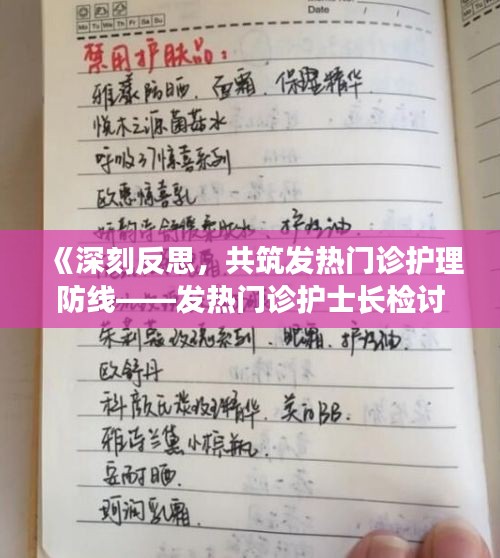 Mo Tu We Th Fr Sa Su
Date / /
禁用护肤品:
雅漾防晒、面霜、保湿精华
悦木之源菌菇水
呼吸37惊喜系列
欧惠惊喜乳
护手油
《深刻反思，共筑发热门诊护理
防线——发热门诊护士长检讨
茱莉蔻玫瑰系列、眼霜、护手油
欧舒丹
科颜氏淡斑精华 美白BB.
雅诗兰黛小棕瓶
安耐晒
珂润乳霜